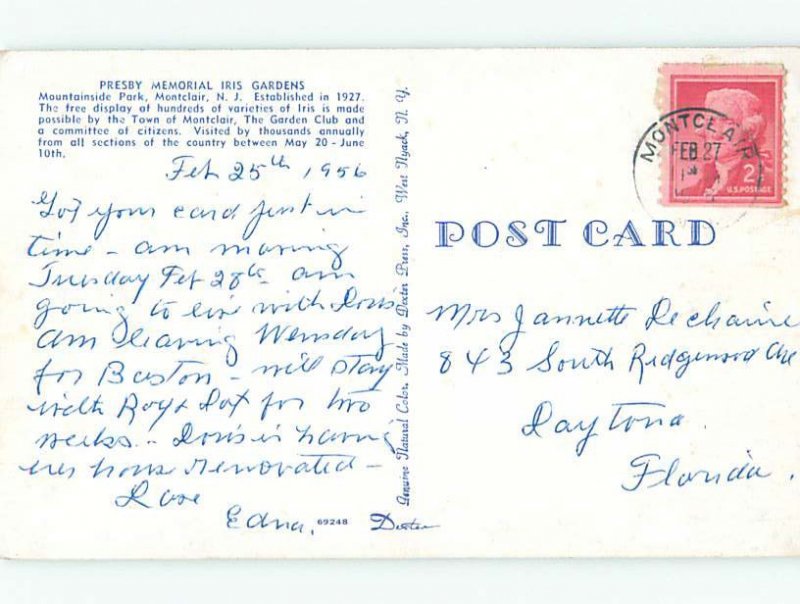 PRESBY MEMORIAL IRIS GARDENS
Mountainside Park, Montclair, N. J. Established in 1927.
The free display of hundreds of varieties of Iris is made
possible by the Town of Montclair, The Garden Club and
a committee of citizens. Visited by thousands annually
from all sections of the country between May 20 - June
10th.
Feb 25th 1956
Got your card just in
time - am moving
Tuesday Feb 28th am
going to live with Doris
am leaving Wensday
for Boston - will stay
with Roy & Dot for two
weeks - Doris is having
house renovated -
Love
Edna.
69248
Dexter
Genuine Natural Color. Made by Dexter Press, Inc., West Nyack, N. Y.
MONTCLAIR
FEB 27
2¢
U.S. POSTAGE
POST CARD
Mrs Jannette Dechaine
843 South Ridgewood Ave
Daytona
Florida.